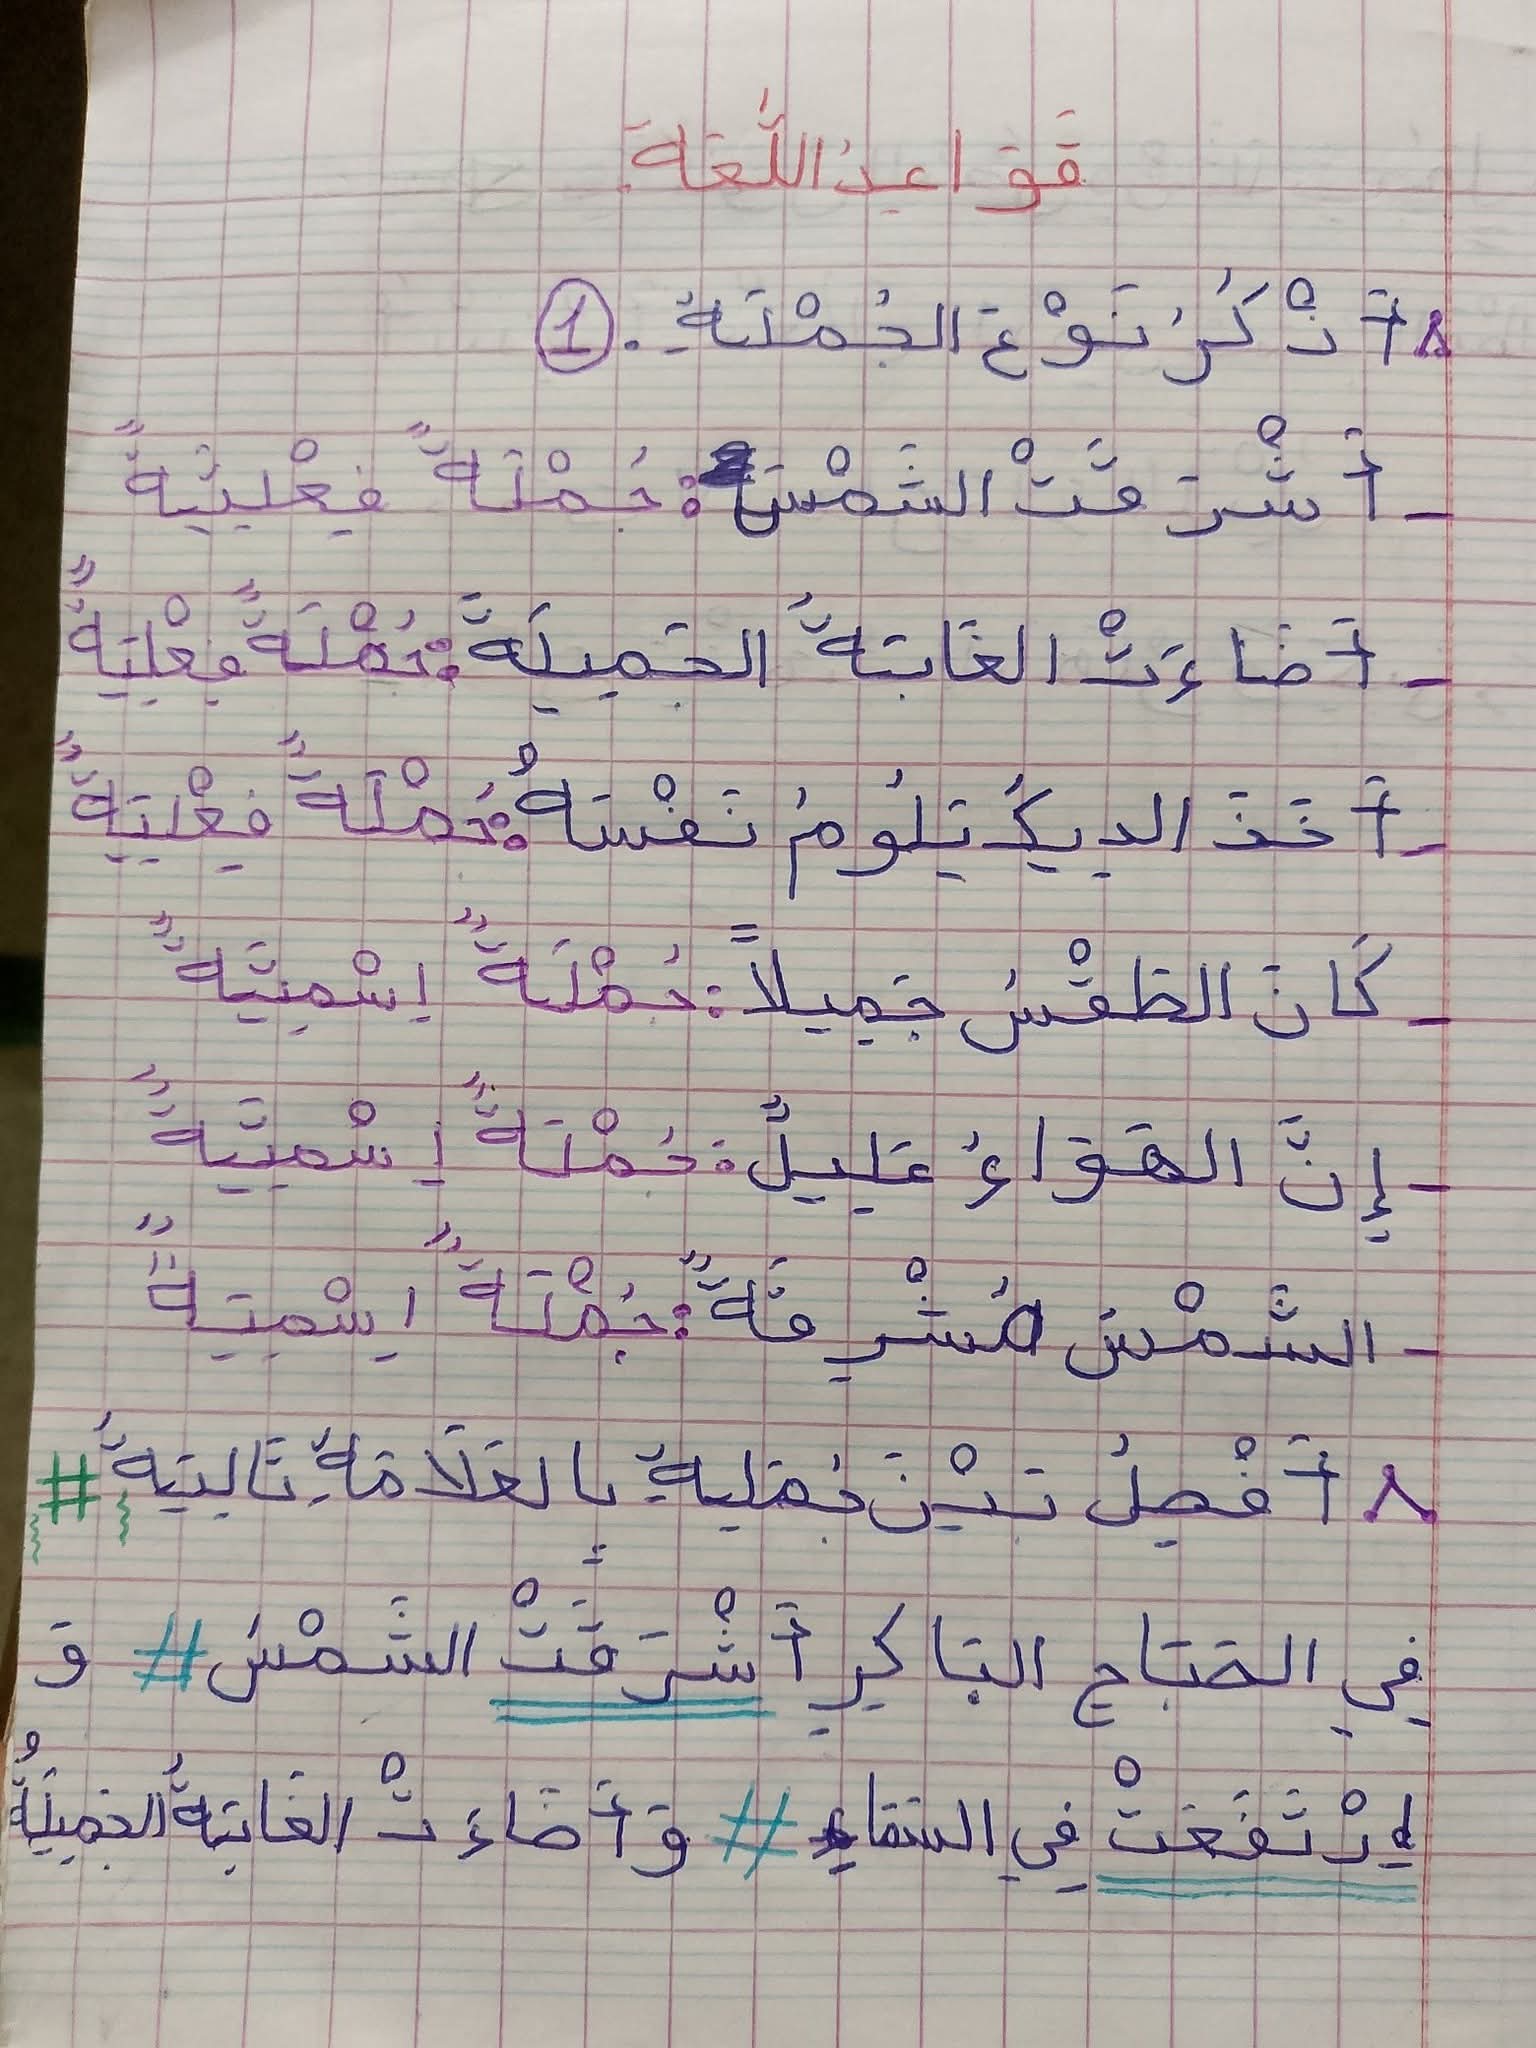 قَوَاعِدُ اللُّغَةِ
أَذْكُرُ نَوْعَ الجُمْلَةِ. 1
- أَشْرَقَتْ الشَّمْسُ: جُمْلَةٌ فِعْلِيَّةٌ
- أَضَاءَتْ الغَابَةُ الجَمِيلَةَ: جُمْلَةٌ فِعْلِيَةٌ
- أَخَذَ الدِيكُ يَلُومُ نَفْسَهُ: جُمْلَةٌ فِعْلِيَةٌ
- كَانَ الطَقْسُ جَمِيلاً: جُمْلَةٌ اِسْمِيَّةٌ
- إِنَّ الهَوَاءُ عَلِيلٌ: جُمْلَةٌ اِسْمِيَّةٌ
- الشَّمْسُ مُشْرِقَةٌ: جُمْلَةٌ اِسْمِيَةٌ
أَفْصِلُ بَيْنَ جُمَلِيةِ بِالعَلَامَةِ تَالِيَةُ #
فِي الصَبَاحِ البَاكِرِ أَشْرَقَتْ الشَّمْسُ # وَ
اِرْتَفَعَتْ فِي السَمَاءِ # وَ أَضَاءَتْ الغَابَةُ الجَمِيلَةُ